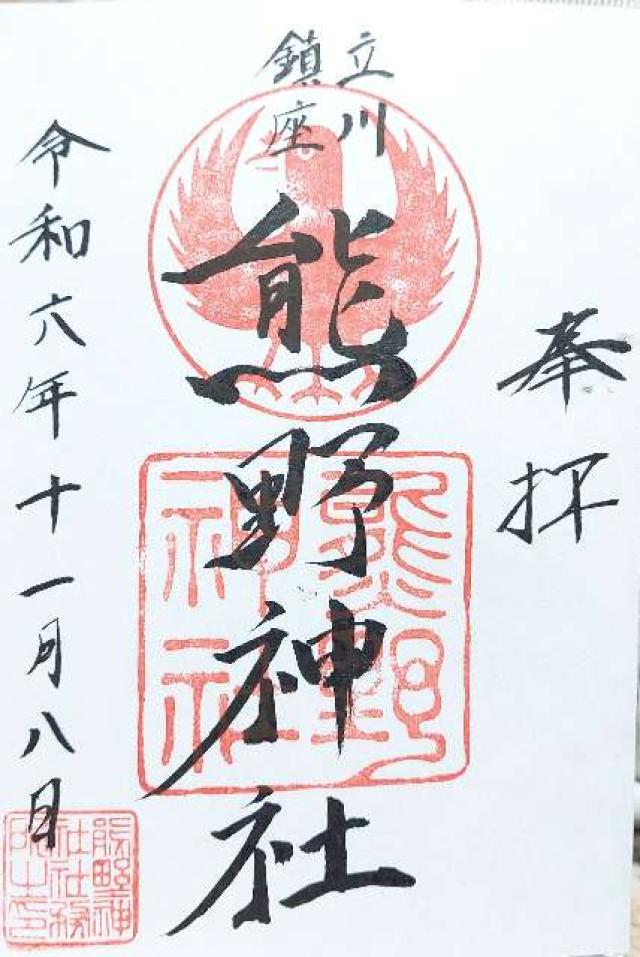 奉拝
立川
鎮座
熊野神社
熊野
神社
令和六年十一月八日
熊野神
社社務
所之印